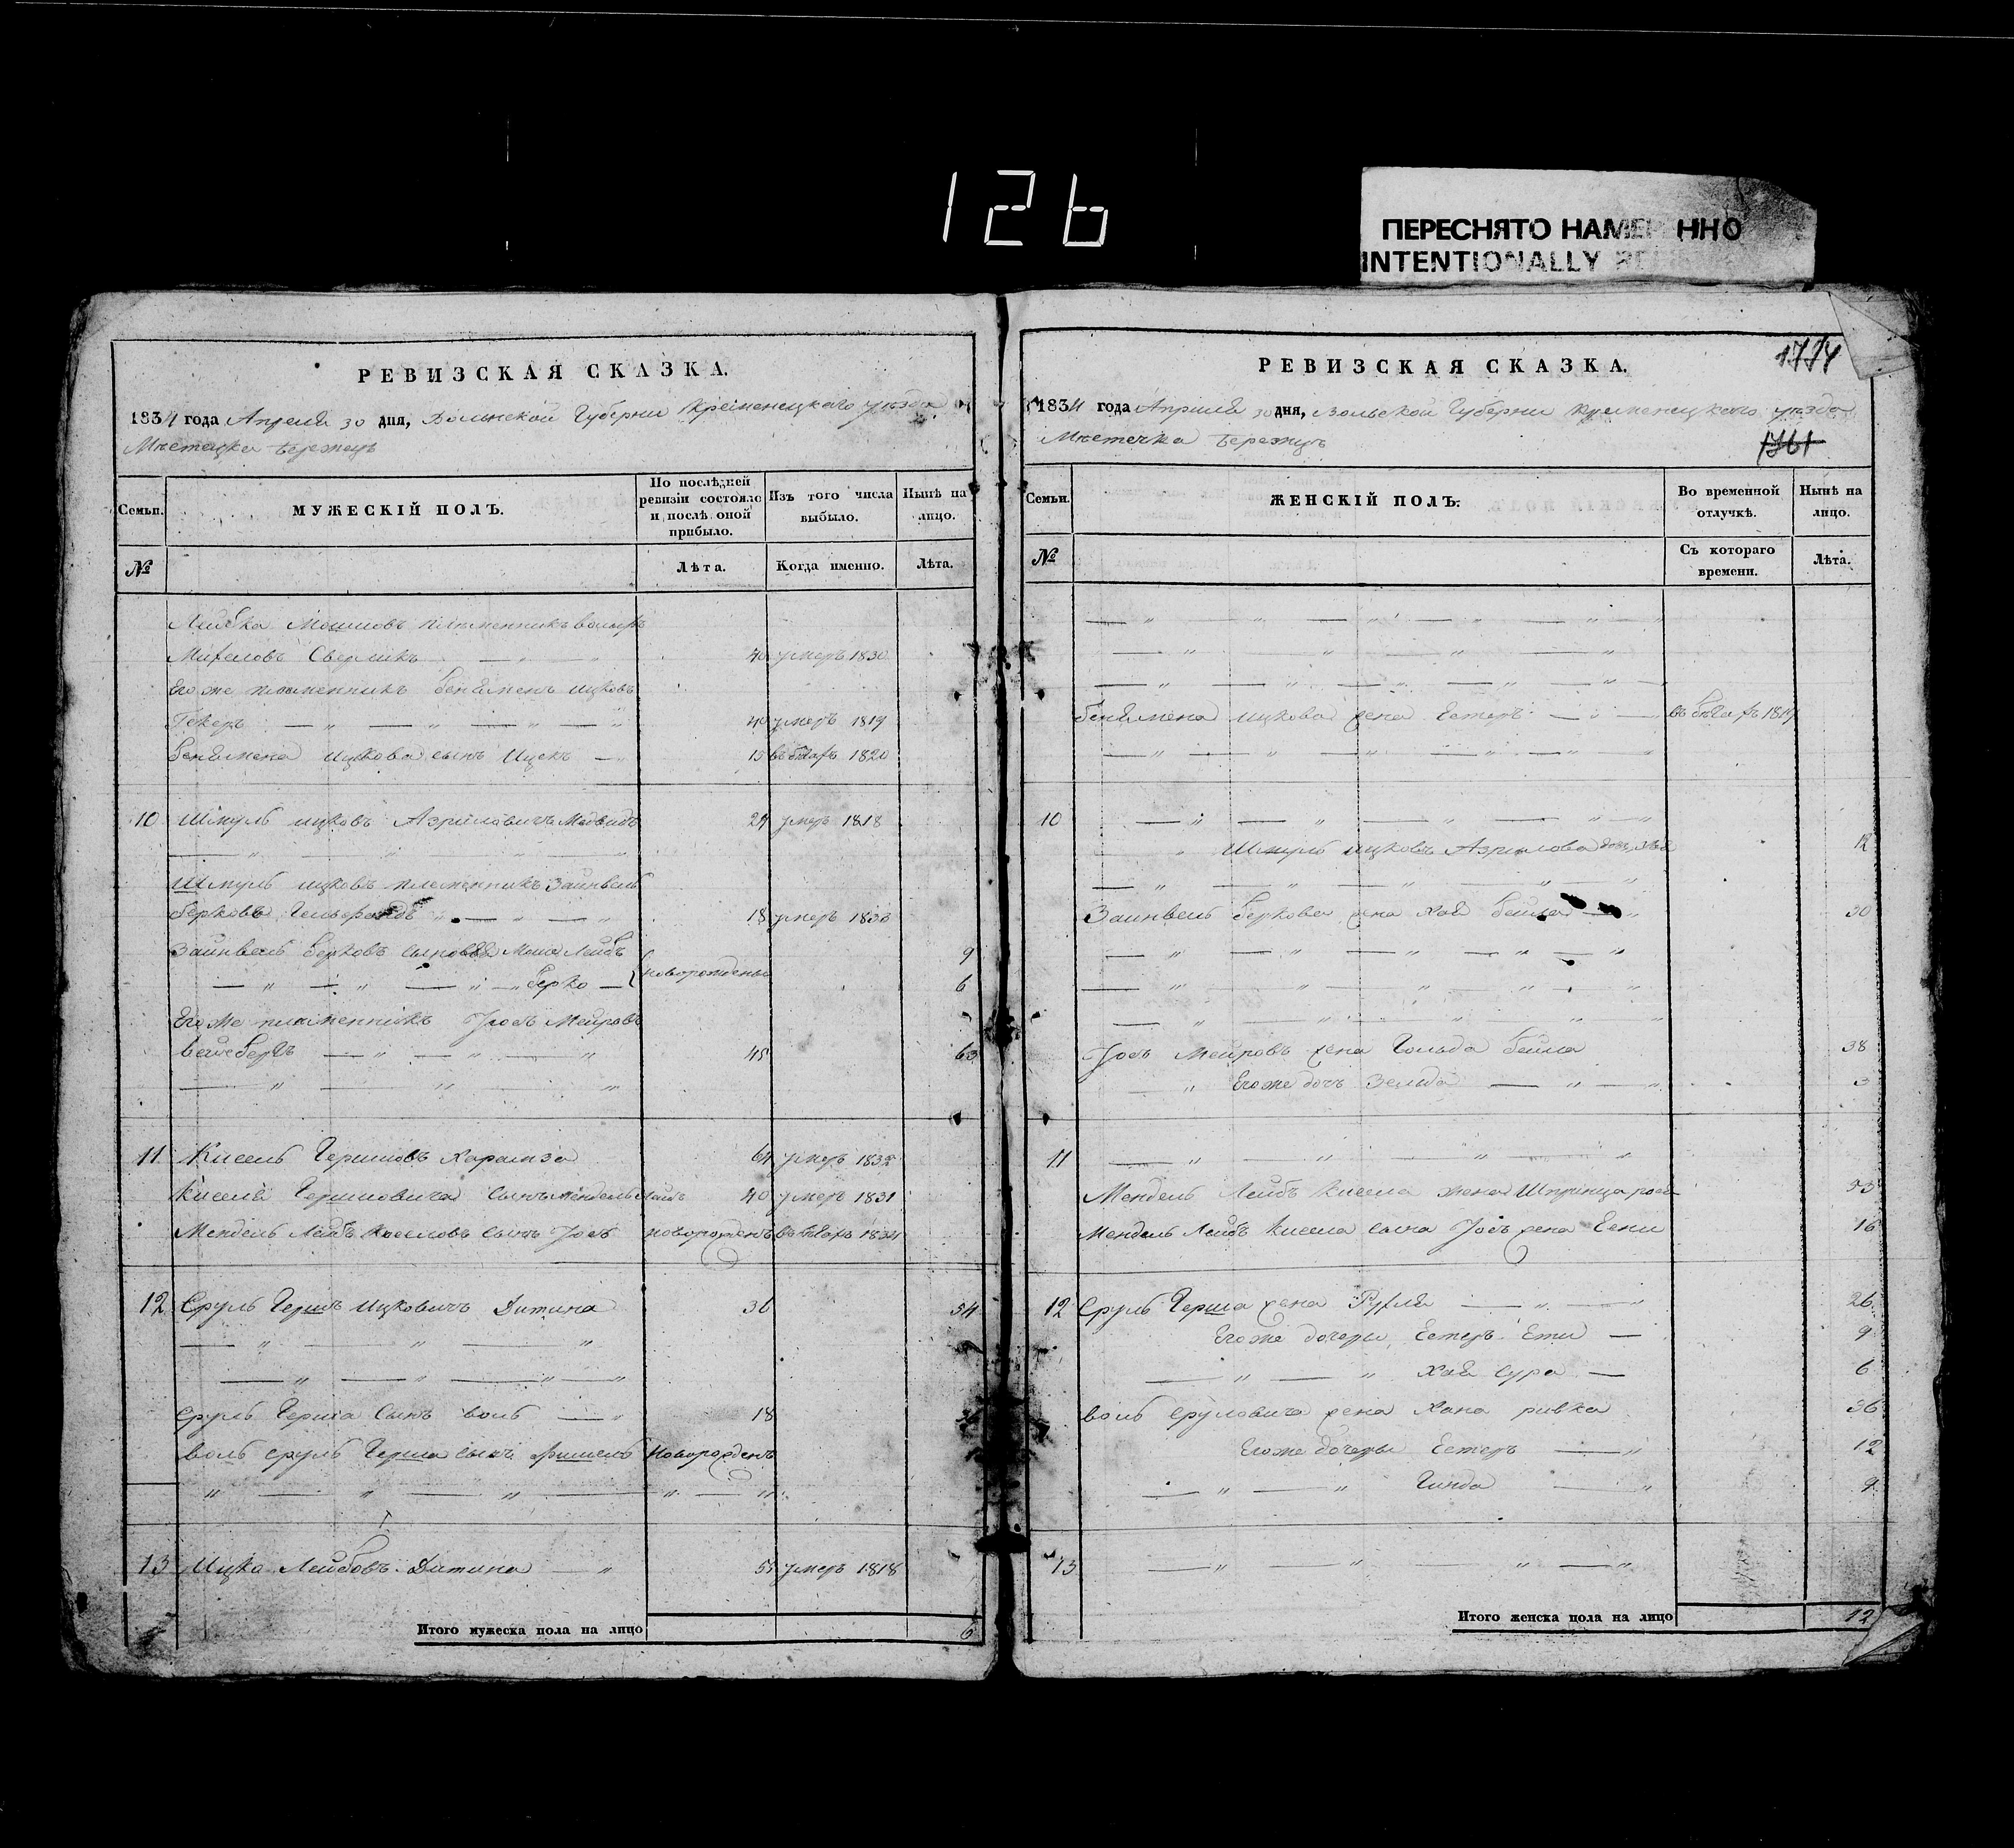 126
ПЕРЕСНЯТО НАМЕР ННО
INTENTIONALLY
РЕВИЗСКАЯ СКАЗКА.
1834 года Апреля 30 дня, Волынской Губерни Кременецкого уезда
Местечка Бережецъ
Семьи.
МУЖЕСКІЙ ПОЛЪ.
По послѣдней ревизіи состояло и послѣ оной прибыло.
Изъ того числа выбыло.
Нынѣ на лицо.
№
Лѣта.
Когда именно.
Лѣта.
Лейбка Мошковъ племенникъ
40 умеръ 1830
Его же племенникъ Бенямень Ицковъ
40 умеръ 1819
Бенямена Ицкова сынъ Ицекъ 13 въ бегахъ 1820
10 Шмуль Ицковъ Азриловичъ Медведъ 24 умеръ 1818
Шмуль Ицковъ племенникъ Зайнвель
Берковъ 18 умеръ 1830
Зайнвель Берковъ сыновья Мошко Лейбъ 9
Берко новорожденые 6
Его же племенникъ Іосъ Мейровъ
45 63
11 Кисель Гершковъ 64 умеръ 1832
Киселя Гершковича сынъ Мендель Лейбъ 40 умеръ 1831
Мендель Лейбъ Киселовъ сынъ Іосъ новорожденъ въ бегахъ 1834
12 Сруль Гершъ Ицковичъ Дитина 36 54
Сруль Герша сынъ Воль 18 36
Воль Сруль Герша сынъ Фишель новорожденъ
13 Ицко Лейбовъ Дитина 55 умеръ 1818
Итого мужеска пола на лицо 6
РЕВИЗСКАЯ СКАЗКА.
1774
1834 года Апреля 30 дня, Волынской Губерни Кременецкого уезда
Местечка Бережецъ
1761
Семьи.
ЖЕНСКІЙ ПОЛЪ.
Во временной отлучкѣ.
Нынѣ на лицо.
№
Съ котораго времени.
Лѣта.
Бенямена Ицкова жена Естеръ въ бегахъ 1819
10
Шмуль Ицковъ Азрилова дочъ 12
Зайнвель Беркова жена Хая Бейла 30
Іосъ Мейровъ жена Гольда Бейла 38
Его же дочъ Зельда 3
11
Мендель Лейбъ Кисела жена Шпринца 53
Мендель Лейбъ Кисела сына Іосъ жена Ени 16
12 Сруль Герша жена Рухля 26
Его же дочери Естеръ Ети 9
Хая Сура 6
Воль Срулович жена Хана Ривка 36
Его же дочеры Естеръ 12
Гинда 9
13
Итого женска пола на лицо 12